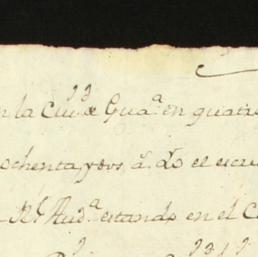 n la Ciu.d de Gua.a en quatro
ochenta, y dos, a.
Rl. Aud.a estando en el C